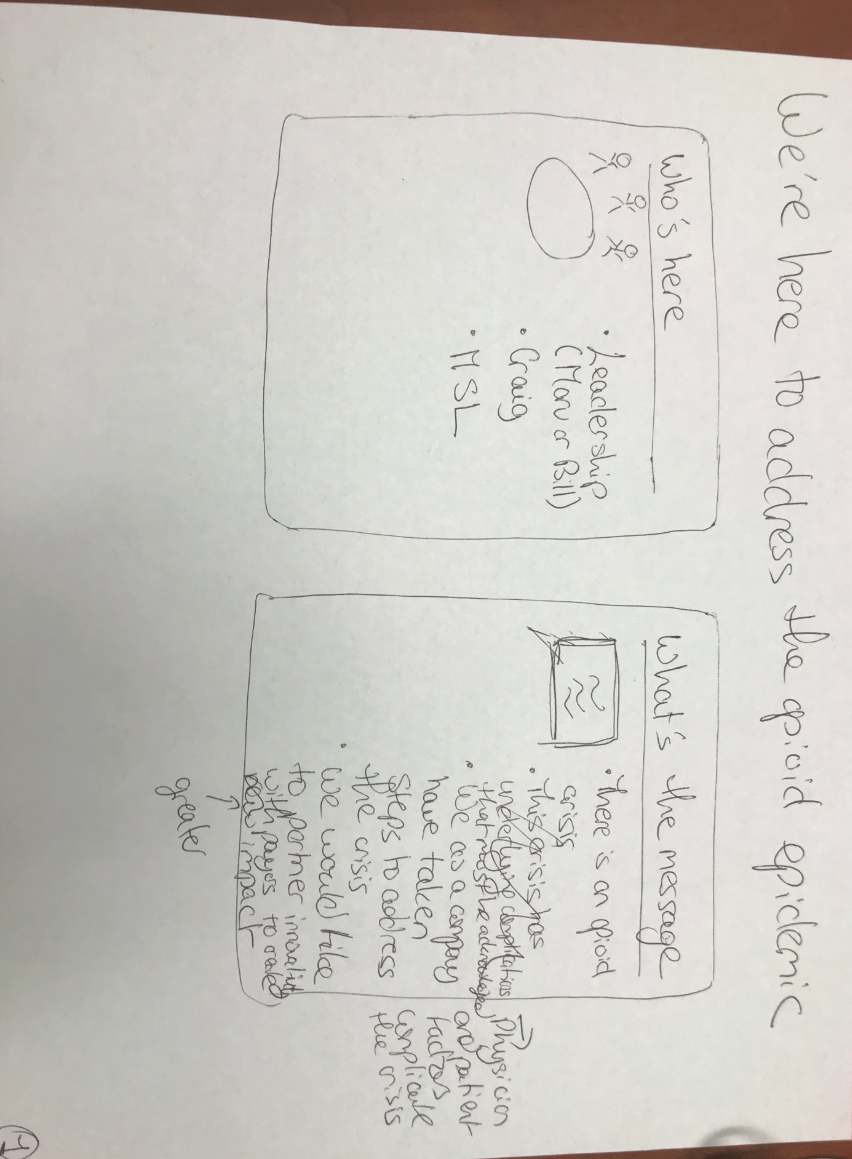 We're here to address the opioid epidemic
Who's here
• Leadership
(Marv or Bill)
• Craig
• MSL
What's the message
• There is an opioid
crisis
• This crisis has
underlying complications
that must be acknowledged
→ Physician
and patient
factors
complicate
the crisis
• We as a company
have taken
steps to address
the crisis
• We would like
to partner
with payers to create
impact
greater
1